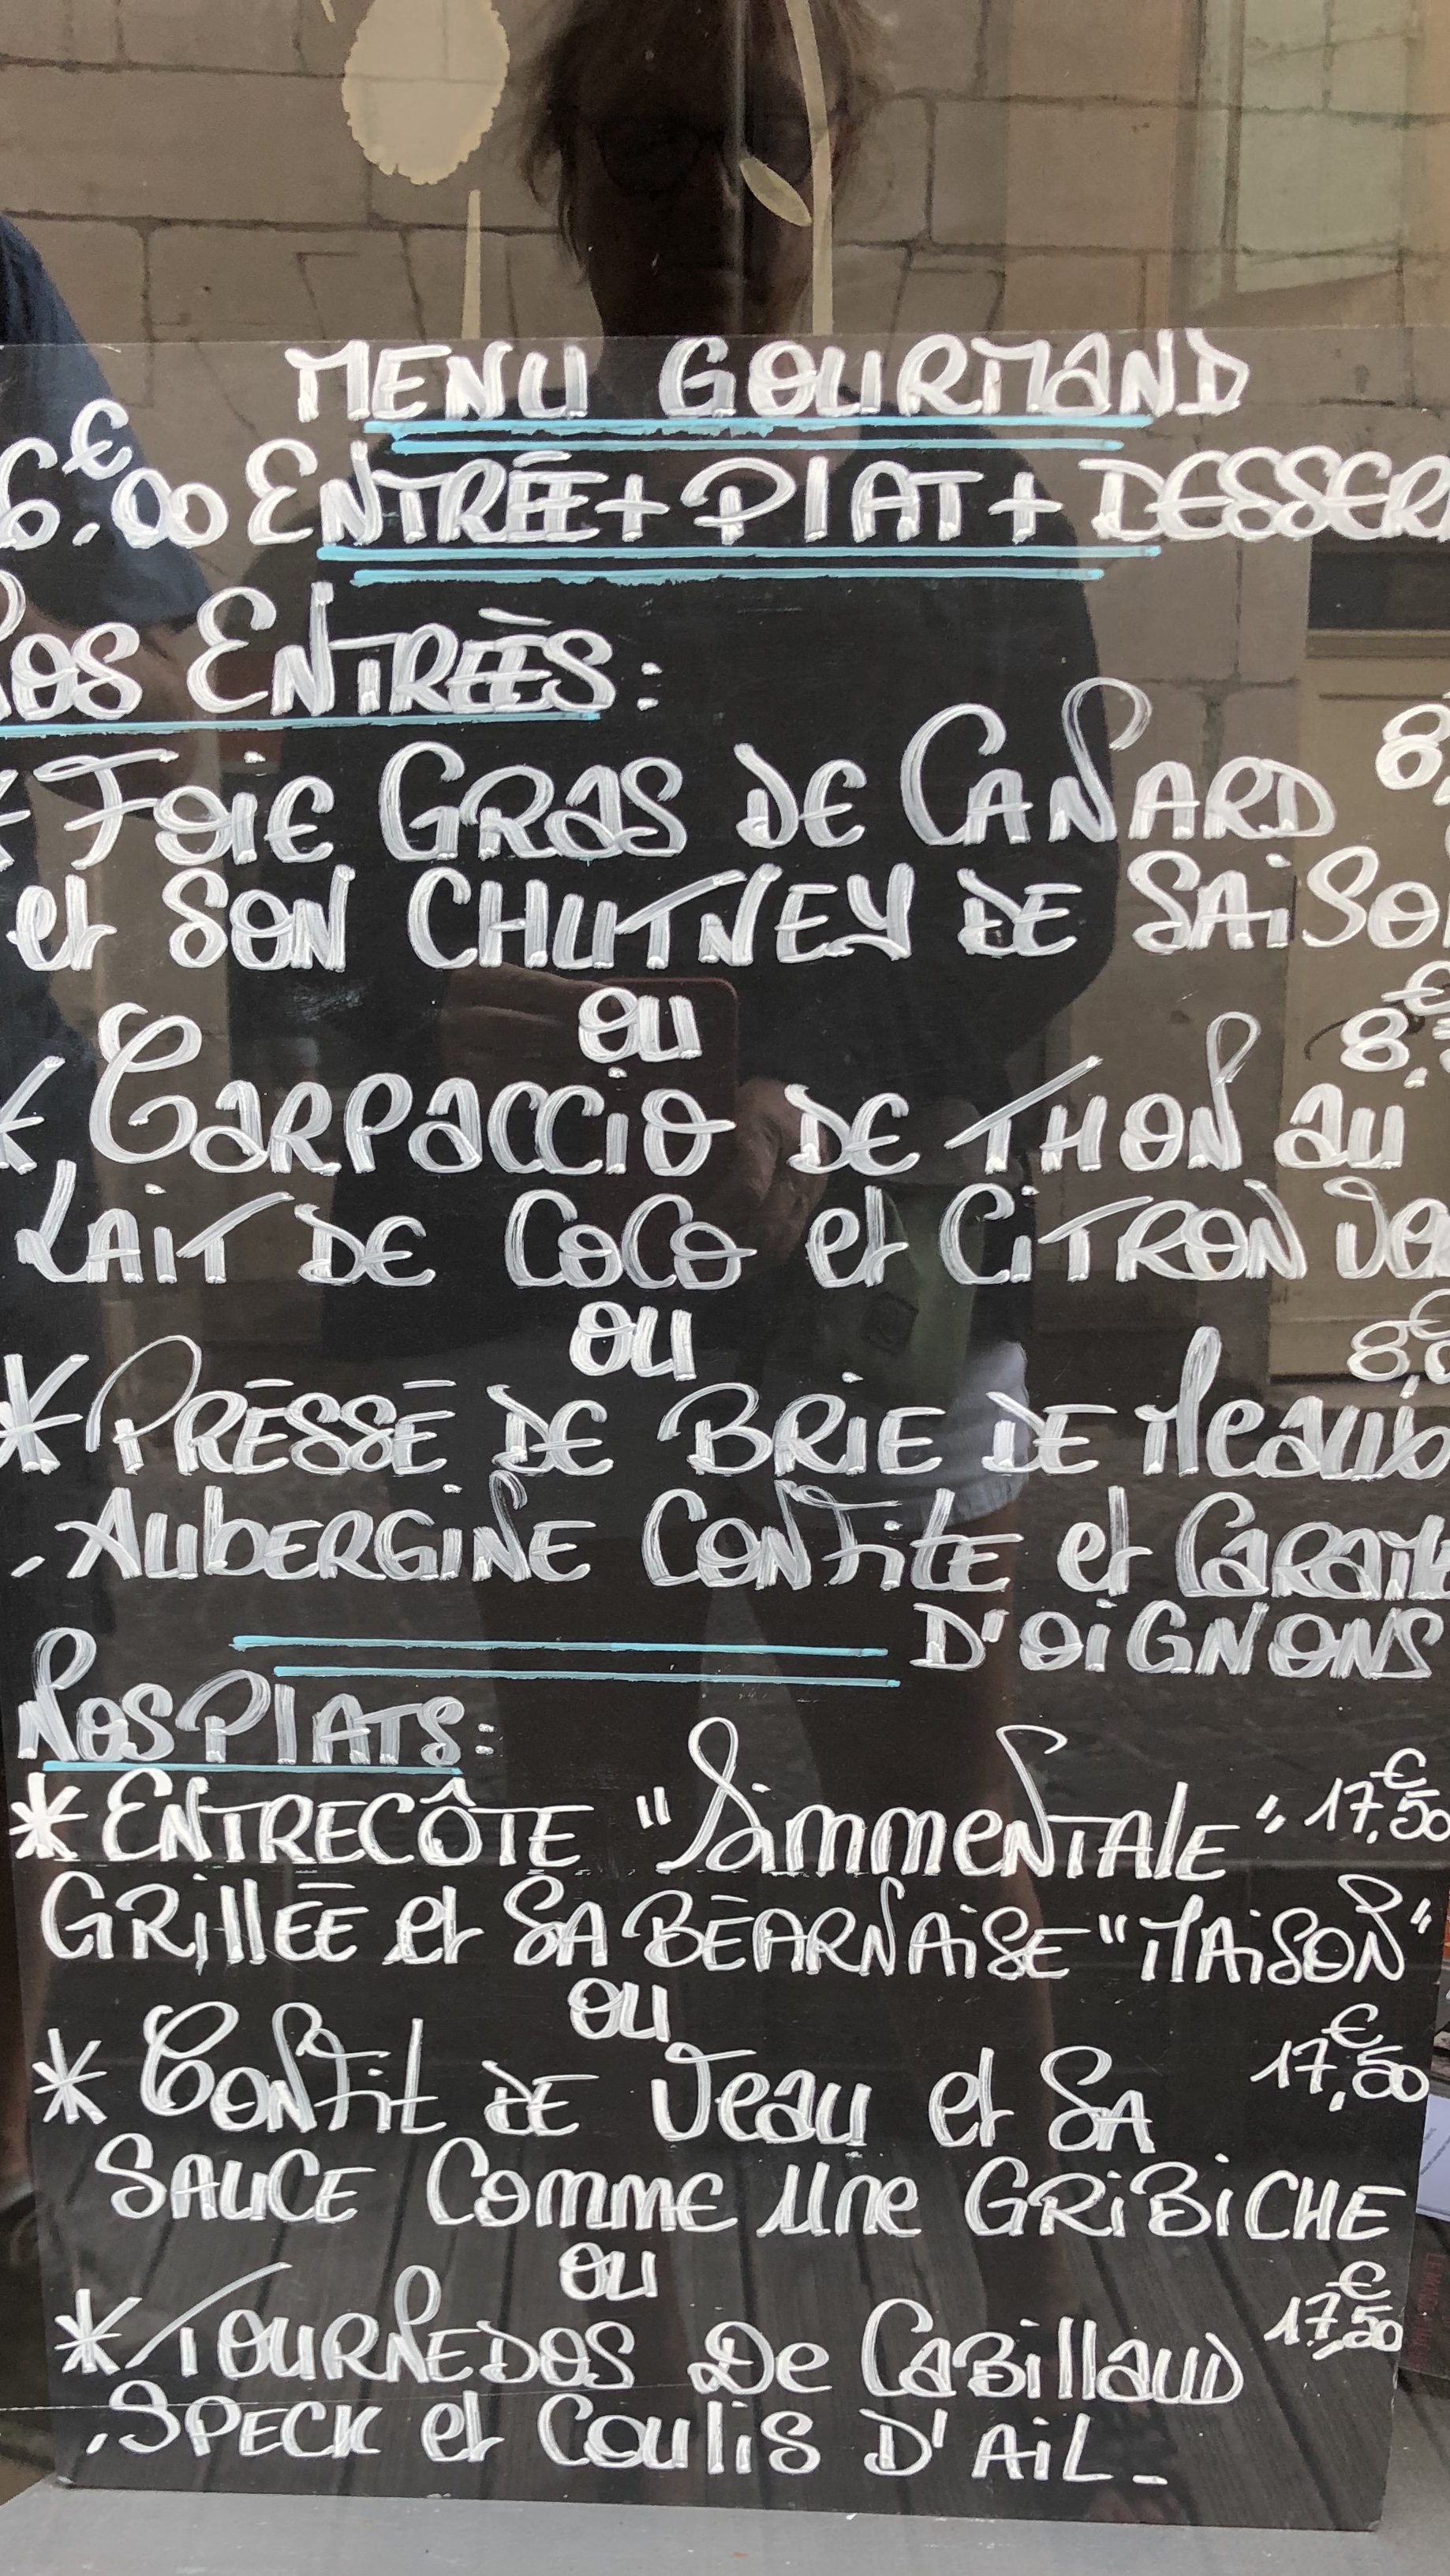 MENU GOURMAND
6,€00 ENTRÉE + PLAT + DESSER
NOS ENTRÉES :
* FOIE GRAS DE CANARD 8,
et SON CHUTNEY DE SAISO
OU
* CARPACCIO DE THON AU 8,€
LAIT DE COCO et CITRON Ve
OU
* PRESSÉ DE BRIE DE Meaux 8,€
, AUBERGINE CONfitE et CARAM
D'OIGNONS
NOS PLATS :
* ENTRECÔTE "SimmenTAlE" 17,€50
GRillÉE et SA BÉARNAISE "MAISON"
OU
* CONfit DE Veau et SA 17,€50
SAUCE Comme Une GRIBICHE
OU
* TOURNEDOS De CABillAUD 17,€50
, SPECK et COULIS D'AIL_